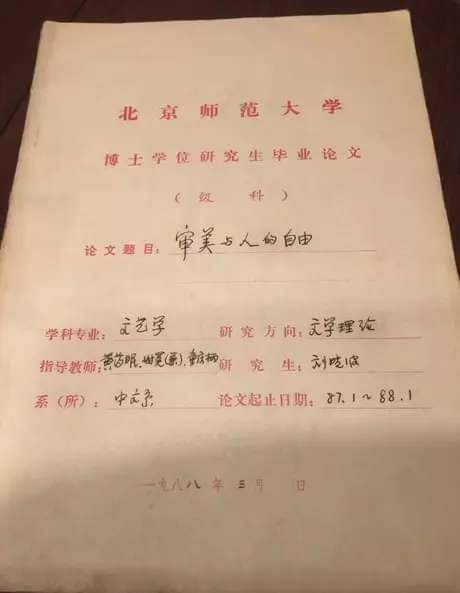 北京师范大学
博士学位研究生毕业论文
（ 级 科 ）
论文题目：审美与人的自由
学科专业：文艺学 研究方向：文学理论
指导教师：黄药眠、 研究生：刘晓波
系（所）：中文系 论文起止日期：87.1～88.1
一九八八年三月 日